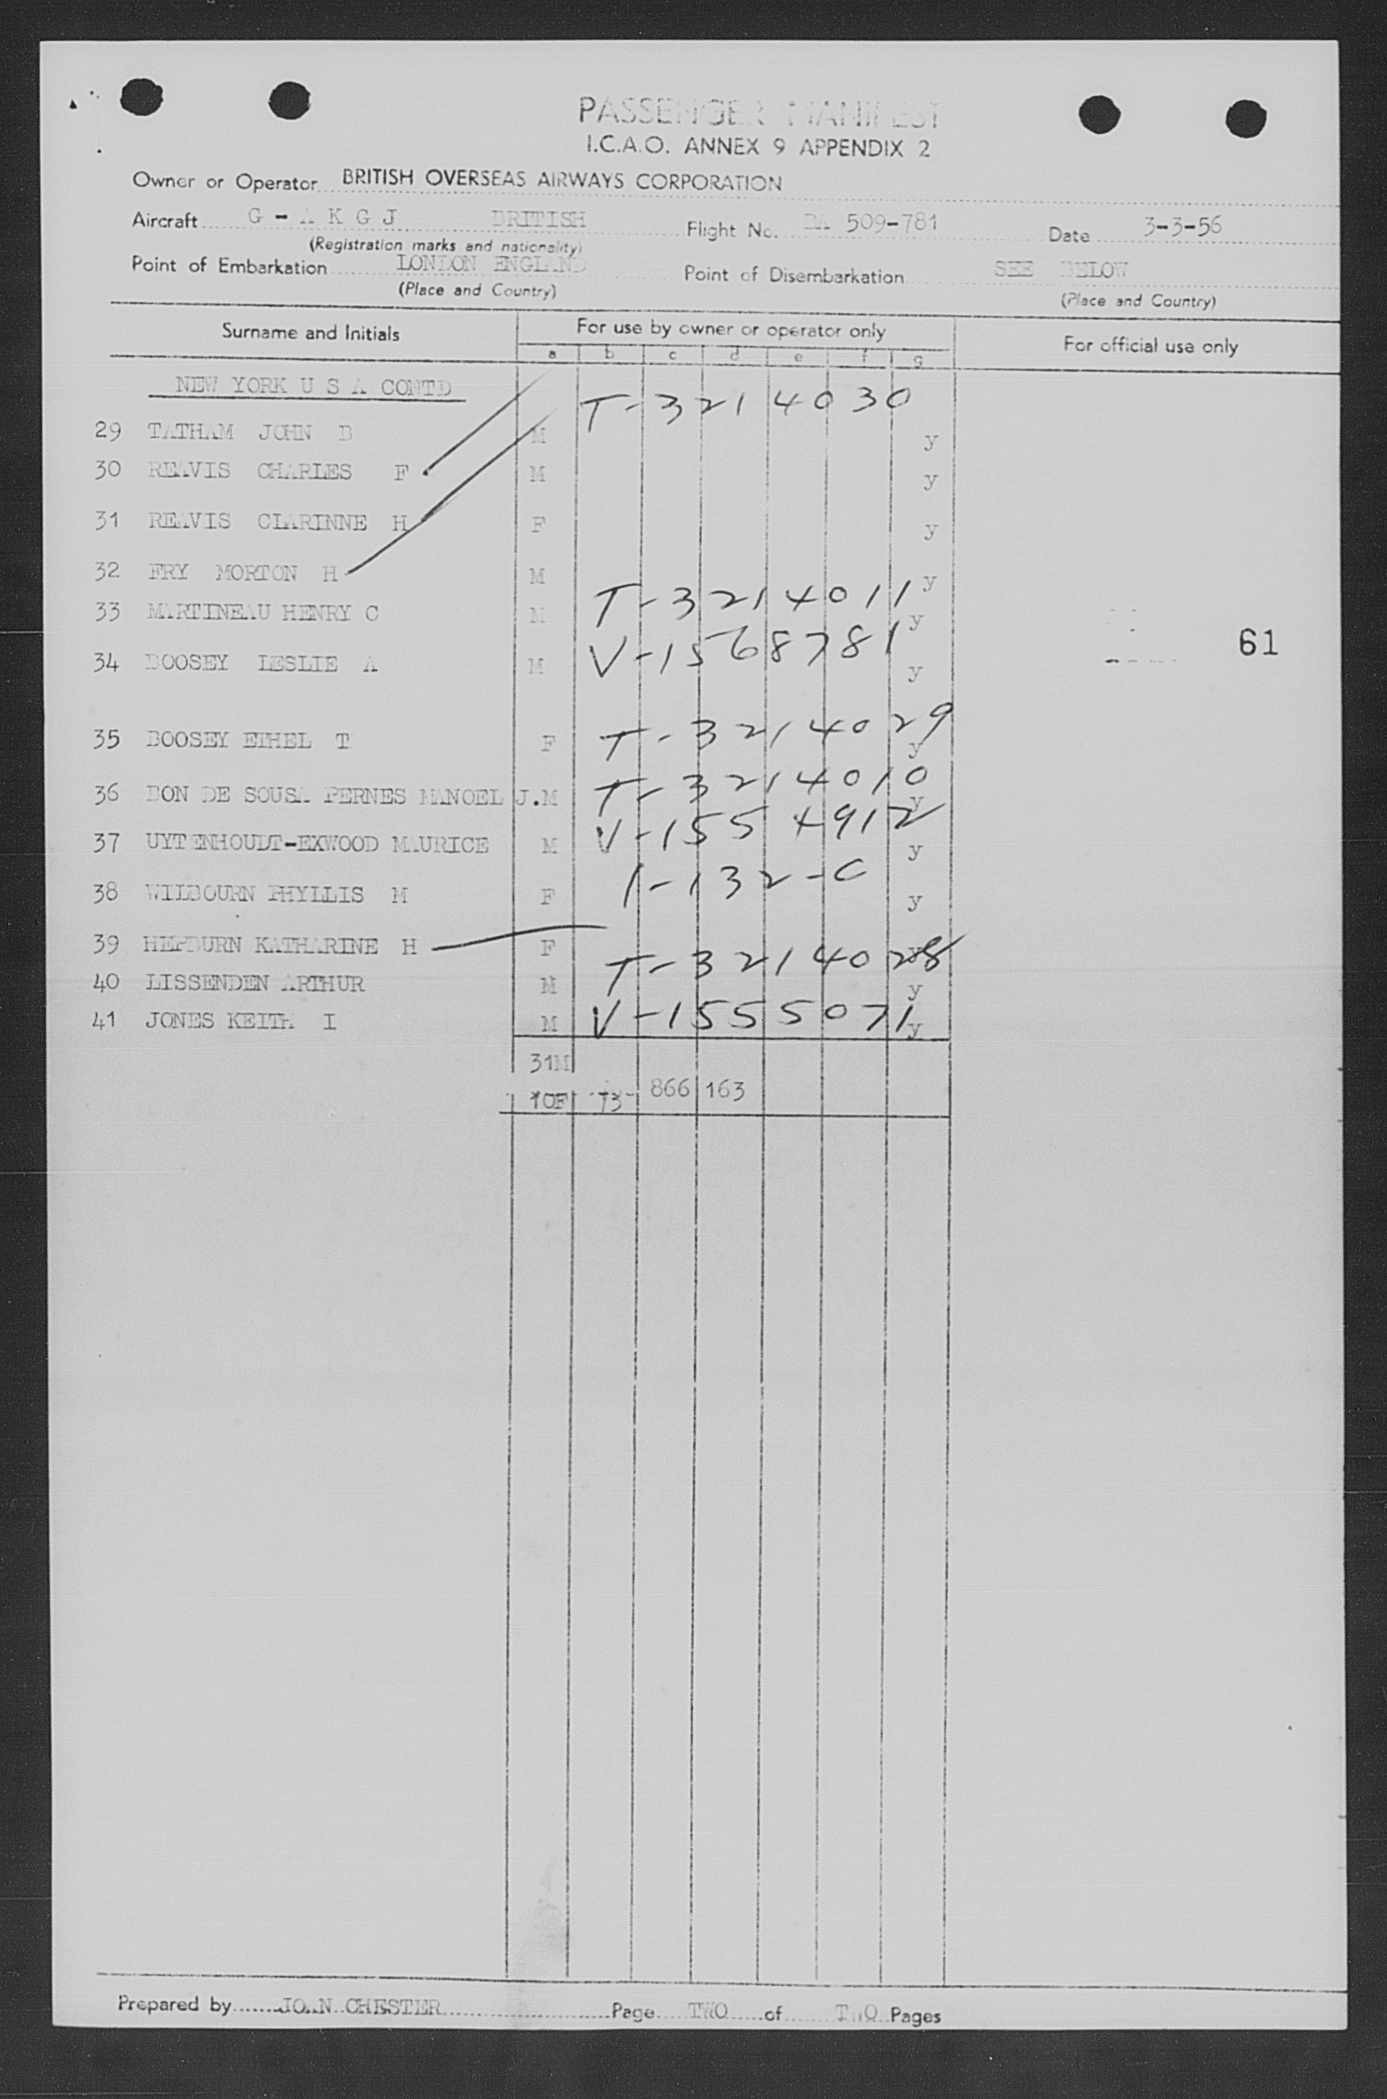 PASSENGER MANIFEST
I.C.A.O. ANNEX 9 APPENDIX 2
Owner or Operator BRITISH OVERSEAS AIRWAYS CORPORATION
Aircraft G - A K G J BRITISH Flight No. BA 509-781 Date 3-3-56
(Registration marks and nationality)
Point of Embarkation LONDON ENGLAND Point of Disembarkation SEE BELOW
(Place and Country) (Place and Country)
Surname and Initials For use by owner or operator only For official use only
a b c d e f g
NEW YORK U S A CONTD
T-3214030
29 TATHAM JOHN B M y
30 REAVIS CHARLES F M y
31 REAVIS CLARINNE H F y
32 FRY MORTON H M y
33 MARTINEAU HENRY C M T-3214011 y
34 BOOSEY LESLIE A M V-1568781 y
61
35 BOOSEY ETHEL T F T-3214029 y
36 DON DE SOUSA PERNES MANOEL J. M T-3214010 y
37 UYTENHOUDT-EXWOOD MAURICE M V-1554912 y
38 WILBOURN PHYLLIS M F 1-132-C y
39 HEPBURN KATHARINE H F y
40 LISSENDEN ARTHUR M T-3214028 y
41 JONES KEITH I M V-1555071 y
31M
10F 73 866 163
Prepared by JOHN CHESTER Page TWO of TWO Pages